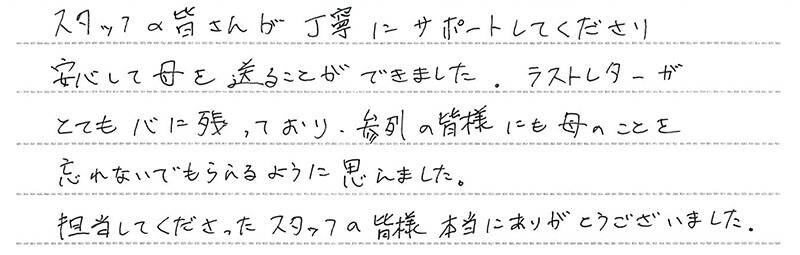 スタッフの皆さんが丁寧にサポートしてくださり
安心して母を送ることができました。ラストレターが
とても心に残っており、参列の皆様にも母のことを
忘れないでもらえるように思えました。
担当してくださったスタッフの皆様本当にありがとうございました。